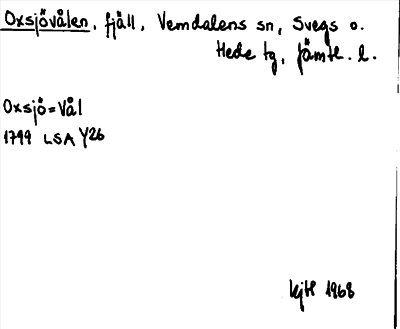 Oxsjövålen, fjäll, Vemdalens sn, Svegs o.
Hede tg, Jämtl. l.
Oxsjö=Vål
1799 LSA Y26
1968